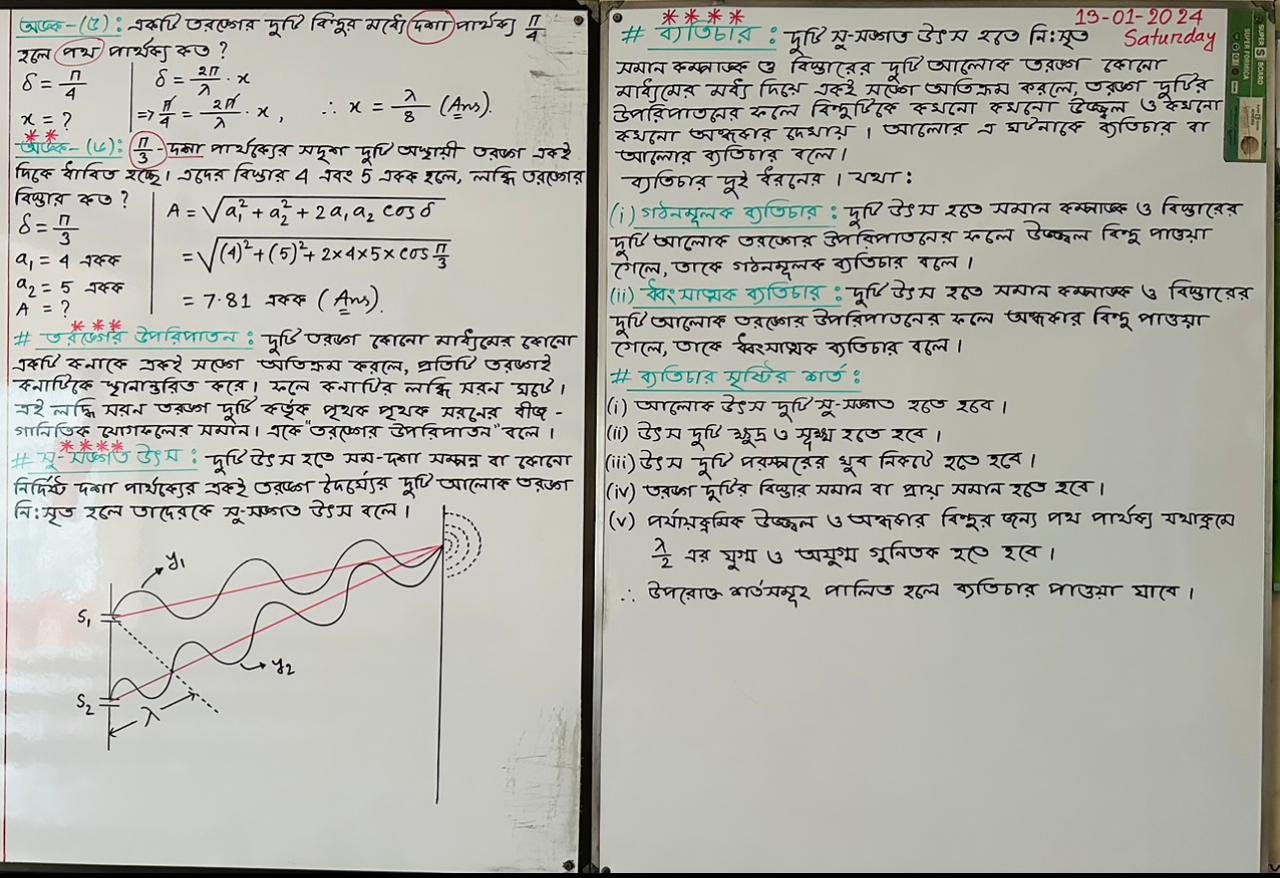 অংক-(৫): একটি তরঙ্গের দুটি বিন্দুর মধ্যে দশা পার্থক্য π/4
হলে পথ পার্থক্য কত?
δ = π/4
x = ?
δ = 2π/λ · x
=> π/4 = 2π/λ · x, ∴ x = λ/8 (Ans).
** অংক-(৬): π/3-দশা পার্থক্যের সদৃশ দুটি অস্থায়ী তরঙ্গ একই
দিকে ধাবিত হচ্ছে। এদের বিস্তার 4 এবং 5 একক হলে, লব্ধি তরঙ্গের
বিস্তার কত?
δ = π/3
a₁ = 4 একক
a₂ = 5 একক
A = ?
A = √(a₁² + a₂² + 2a₁a₂ cosδ)
= √((4)² + (5)² + 2×4×5×cos π/3)
= 7.81 একক (Ans).
***
# তরঙ্গের উপরিপাতন: দুটি তরঙ্গ কোনো মাধ্যমের কোনো
একটি কনাকে একই সঙ্গে অতিক্রম করলে, প্রতিটি তরঙ্গই
কনাটিকে স্থানান্তরিত করে। ফলে কনাটির লব্ধি সরন ঘটে।
এই লব্ধি সরন তরঙ্গ দুটি কর্তৃক পৃথক পৃথক সরনের বীজ-
গানিতিক যোগফলের সমান। একে "তরঙ্গের উপরিপাতন" বলে।
****
# সু-সঙ্গত উৎস: দুটি উৎস হতে সম-দশা সম্পন্ন বা কোনো
নির্দিষ্ট দশা পার্থক্যের একই তরঙ্গ দৈর্ঘ্যের দুটি আলোক তরঙ্গ
নি:সৃত হলে তাদেরকে সু-সঙ্গত উৎস বলে।
y₁
S₁
y₂
S₂
λ
****
13-01-2024
Saturday
# ব্যতিচার: দুটি সু-সঙ্গত উৎস হতে নি:সৃত
সমান কম্পাঙ্ক ও বিস্তারের দুটি আলোক তরঙ্গ কোনো
মাধ্যমের মধ্য দিয়ে একই সঙ্গে অতিক্রম করলে, তরঙ্গ দুটির
উপরিপাতনের ফলে বিন্দুটিকে কখনো কখনো উজ্জ্বল ও কখনো
কখনো অন্ধকার দেখায়। আলোর এ ঘটনাকে ব্যতিচার বা
আলোর ব্যতিচার বলে।
ব্যতিচার দুই ধরনের। যথা:
(i) গঠনমূলক ব্যতিচার: দুটি উৎস হতে সমান কম্পাঙ্ক ও বিস্তারের
দুটি আলোক তরঙ্গের উপরিপাতনের ফলে উজ্জ্বল বিন্দু পাওয়া
গেলে, তাকে গঠনমূলক ব্যতিচার বলে।
(ii) ধ্বংসাত্মক ব্যতিচার: দুটি উৎস হতে সমান কম্পাঙ্ক ও বিস্তারের
দুটি আলোক তরঙ্গের উপরিপাতনের ফলে অন্ধকার বিন্দু পাওয়া
গেলে, তাকে ধ্বংসাত্মক ব্যতিচার বলে।
# ব্যতিচার সৃষ্টির শর্ত:
(i) আলোক উৎস দুটি সু-সঙ্গত হতে হবে।
(ii) উৎস দুটি ক্ষুদ্র ও সূক্ষ্ম হতে হবে।
(iii) উৎস দুটি পরস্পরের খুব নিকটে হতে হবে।
(iv) তরঙ্গ দুটির বিস্তার সমান বা প্রায় সমান হতে হবে।
(v) পর্যায়ক্রমিক উজ্জ্বল ও অন্ধকার বিন্দুর জন্য পথ পার্থক্য যথাক্রমে
λ/2 এর যুগ্ম ও অযুগ্ম গুনিতক হতে হবে।
∴ উপরোক্ত শর্তসমূহ পালিত হলে ব্যতিচার পাওয়া যাবে।
SUPER BOARD
SUPER FORMICA